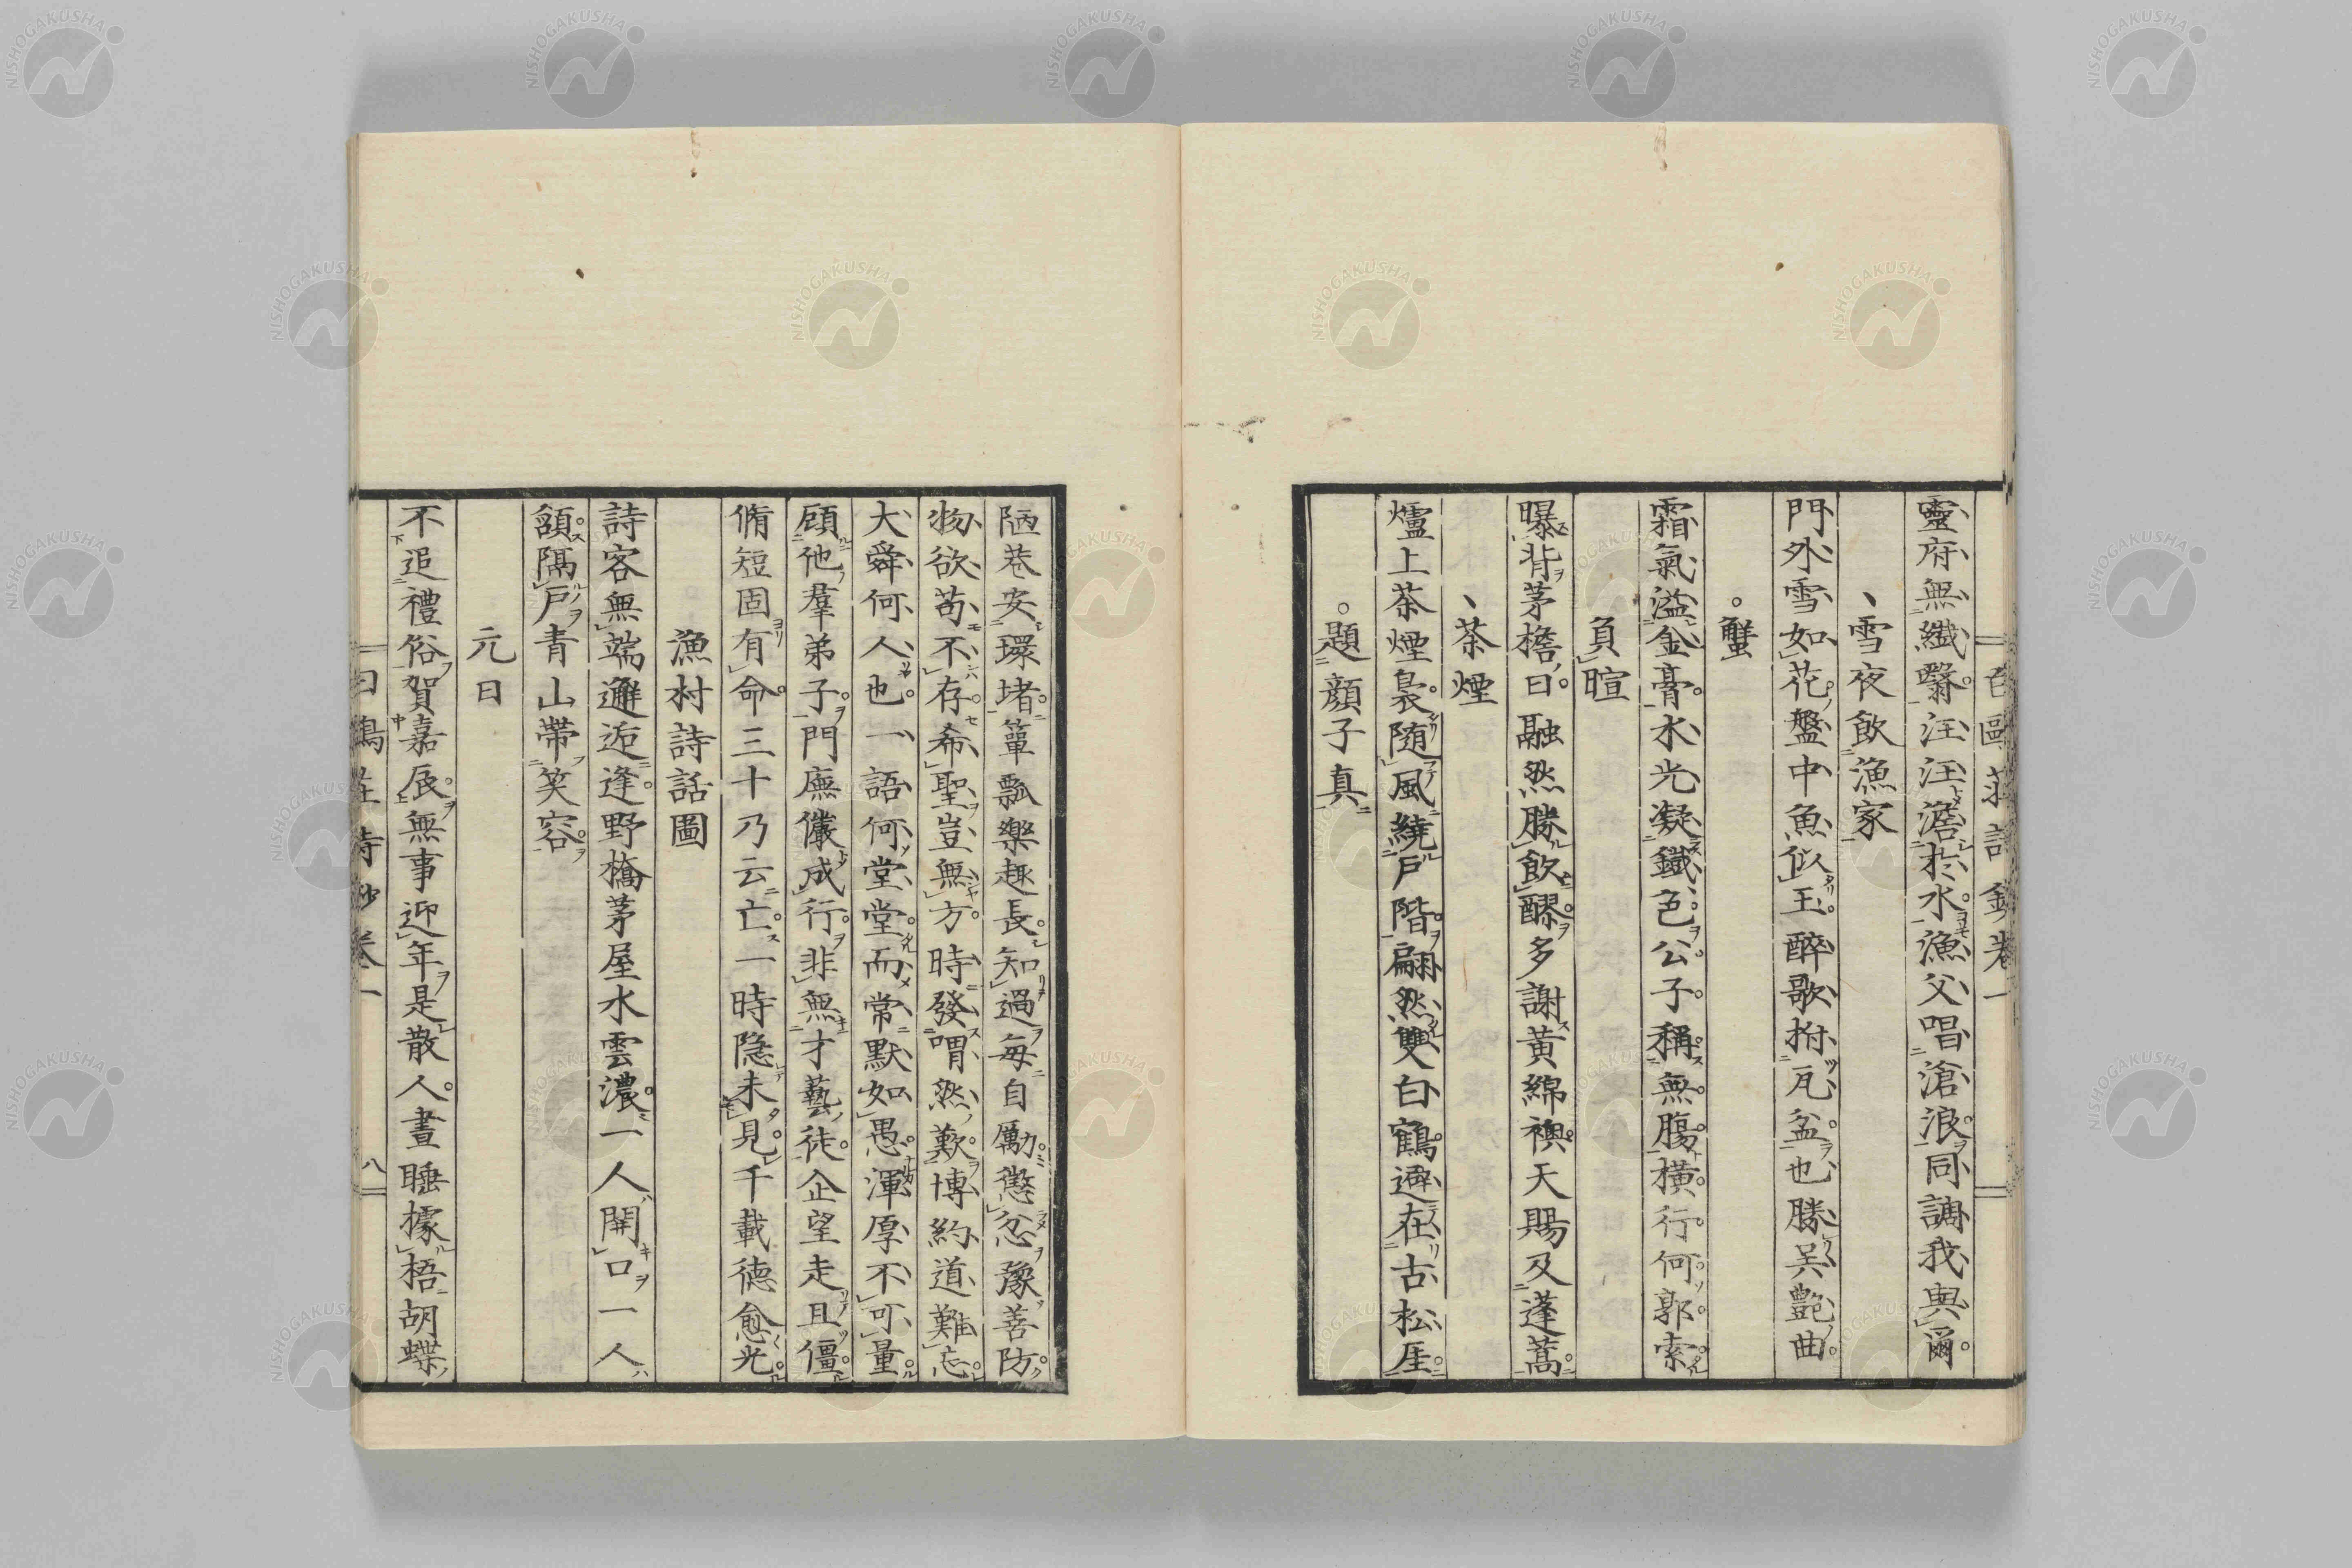 靈府無纖翳汪汪澹於水漁父唱滄浪同調我與爾
雪夜飲漁家
門外雪如花盤中魚似玉醉歌拊瓦盆也勝吳艷曲
蟹
霜氣溢金膏水光凝鐵色公子稱無腸橫行何郭索
負暄
曝背茅檐日融然勝飲醪多謝黃綿襖天賜及蓬蒿
茶煙
爐上茶煙裊隨風繞戶階翩然雙白鶴遊在古松厓
題顔子真
陋巷安環堵簞瓢樂趣長知過每自勵懲忿豫善防
物欲苟不存希聖豈無方時發喟然歎博約道難忘
大舜何人也一語何堂堂而常默如愚渾厚不可量
顧他羣弟子門廡儼成行非無才藝徒企望走且僵
脩短固有命三十乃云亡一時隱未見千載德愈光
漁村詩話圖
詩客無端邂逅逢野橋茅屋水雲濃一人開口一人
額隔戶青山帶笑容
元日
不追禮俗賀嘉辰無事迎年是散人晝睡據梧胡蝶
白鷗莊詩鈔卷一
八
NISHOGAKUSHA